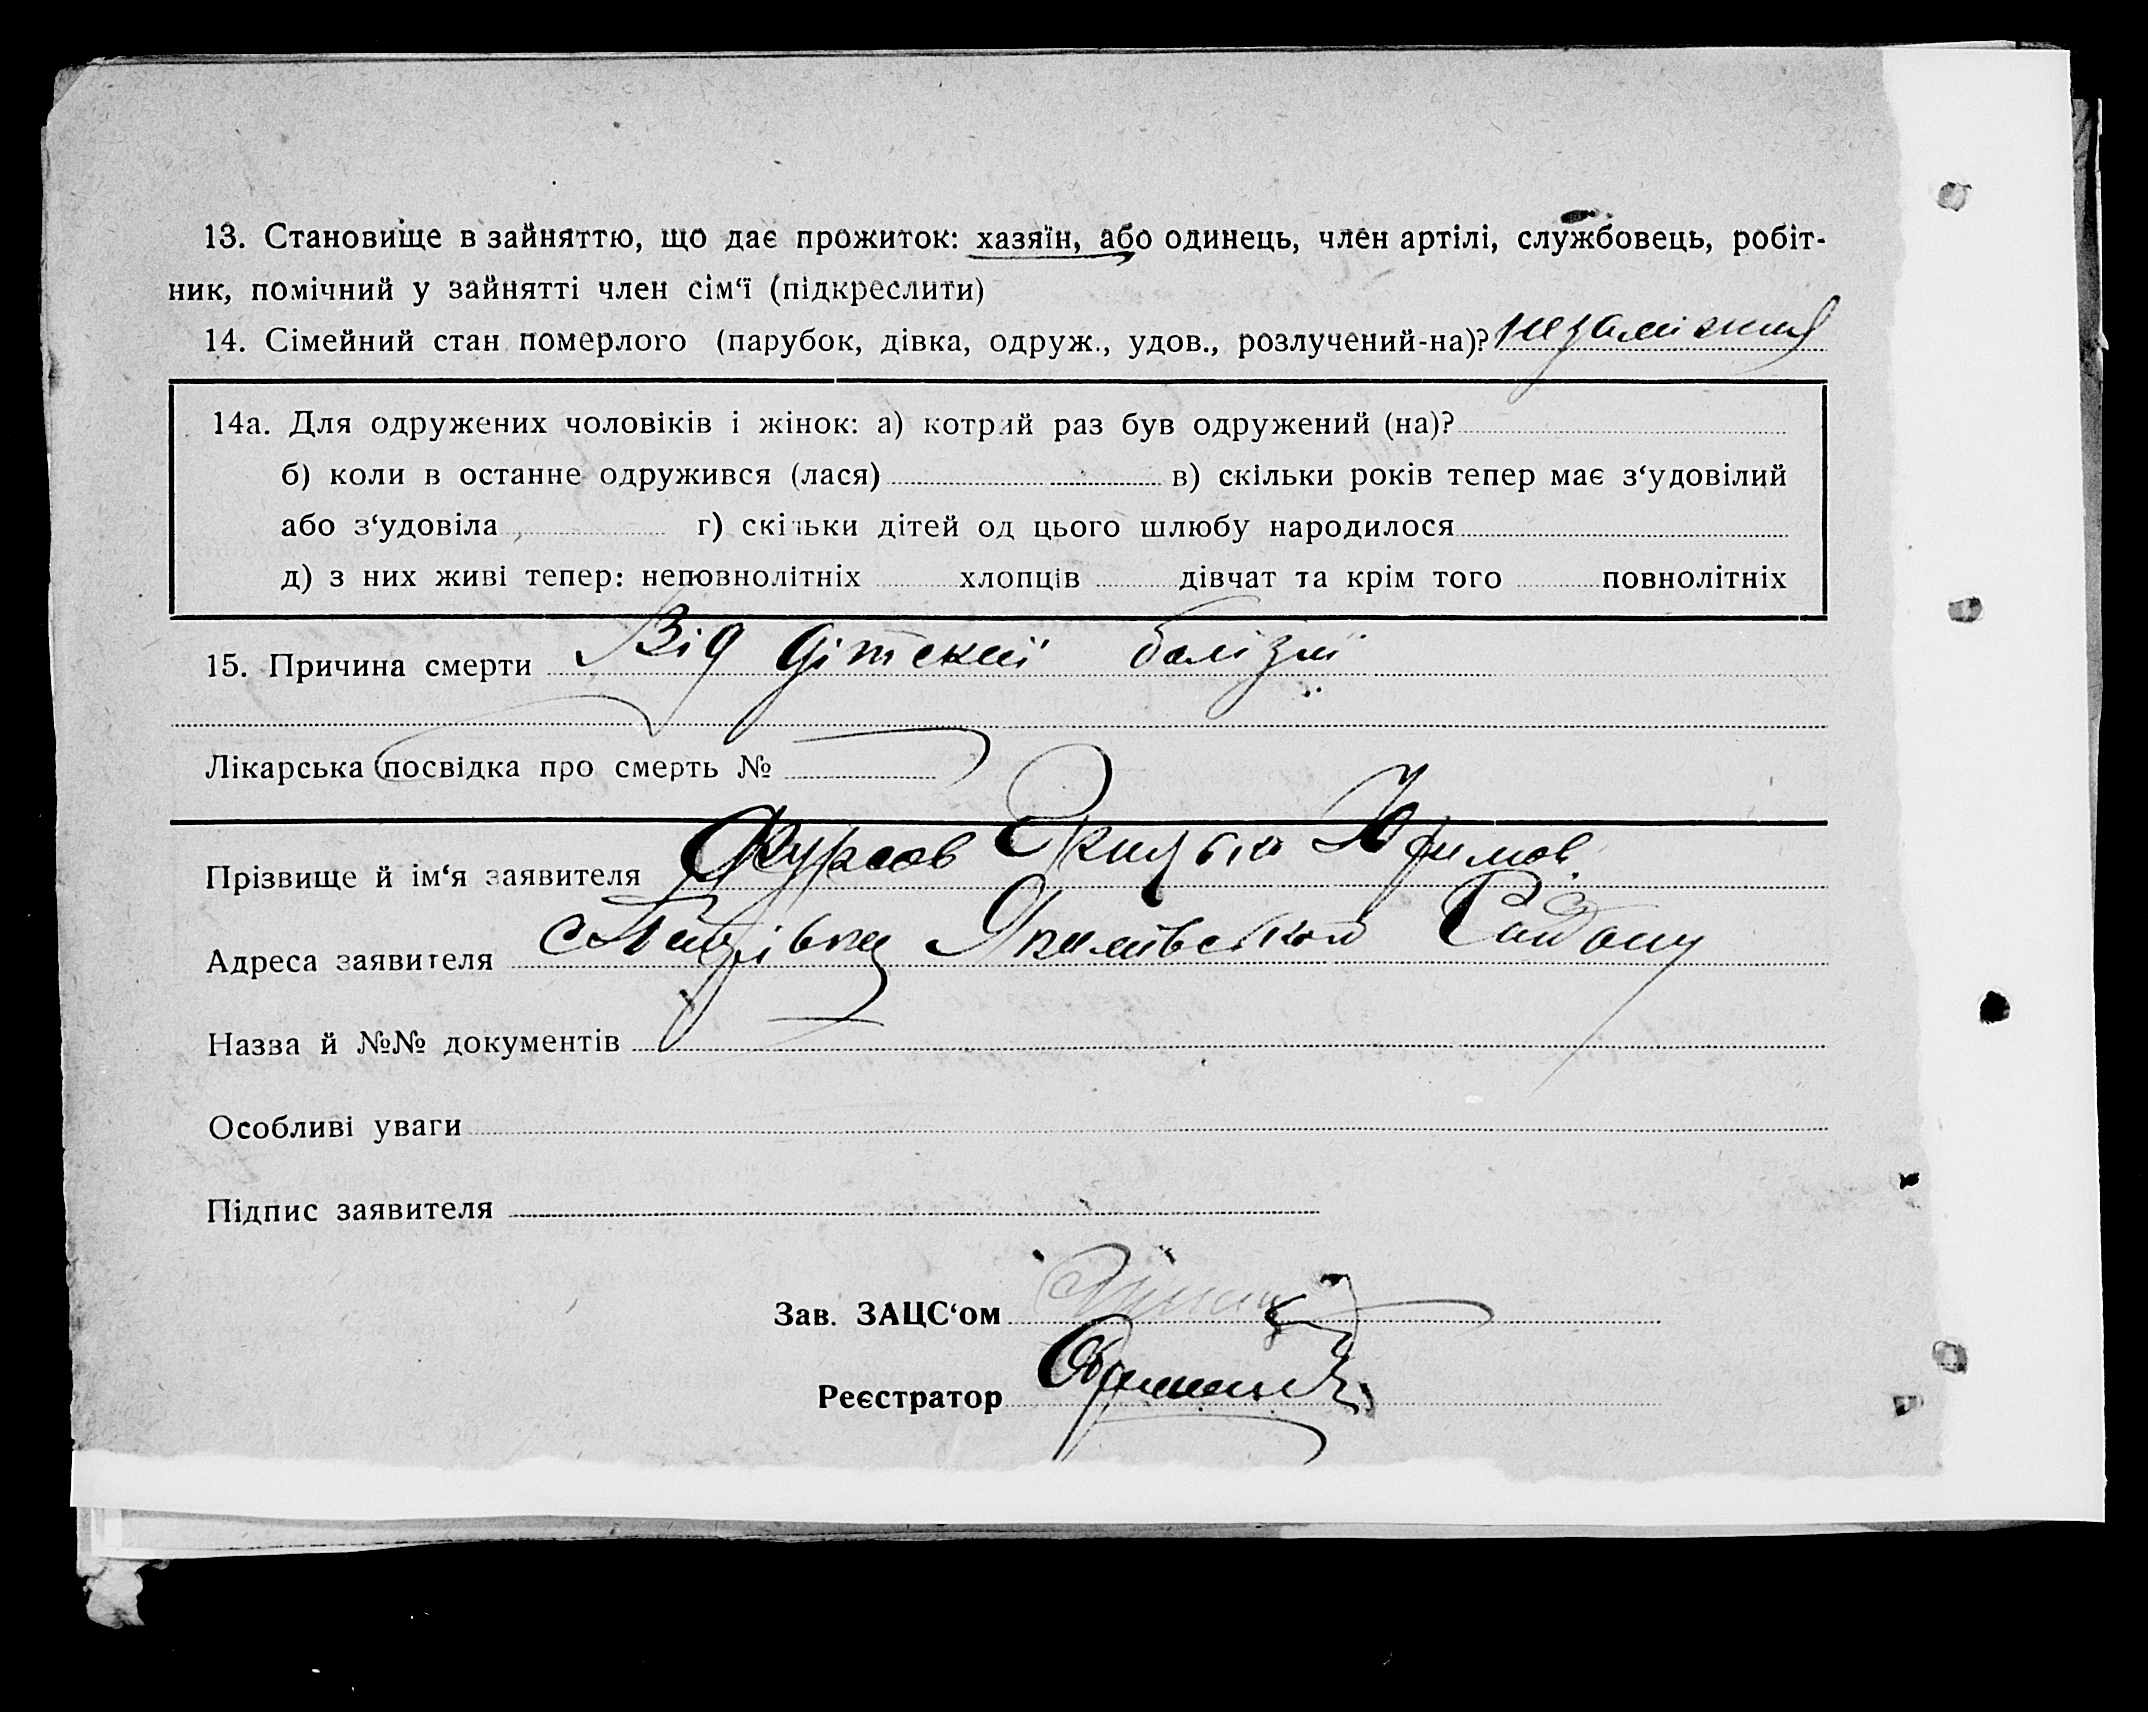 13. Становище в зайняттю, що дає прожиток: хазяїн, або одинець, член артілі, службовець, робіт-
ник, помічний у зайнятті член сім‘ї (підкреслити)
14. Сімейний стан померлого (парубок, дівка, одруж., удов., розлучений-на)? незаміжня
14а. Для одружених чоловіків і жінок: а) котрий раз був одружений (на)?
б) коли в останне одружився (лася) в) скільки років тепер має з‘удовілий
або з‘удовіла г) скільки дітей од цього шлюбу народилося
д) з них живі тепер: неповнолітніх хлопців дівчат та крім того повнолітніх
15. Причина смерти Від дітскиї болізні
Лікарська посвідка про смерть №
Прізвище й ім‘я заявителя
Адреса заявителя
Назва й №№ документів
Особливі уваги
Підпис заявителя
Зав. ЗАЦС‘ом
Реєстратор